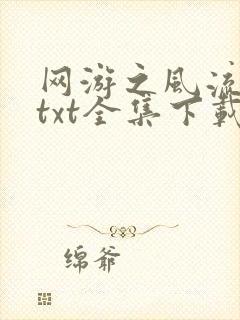 网游之风流
txt全集下载
绵爷